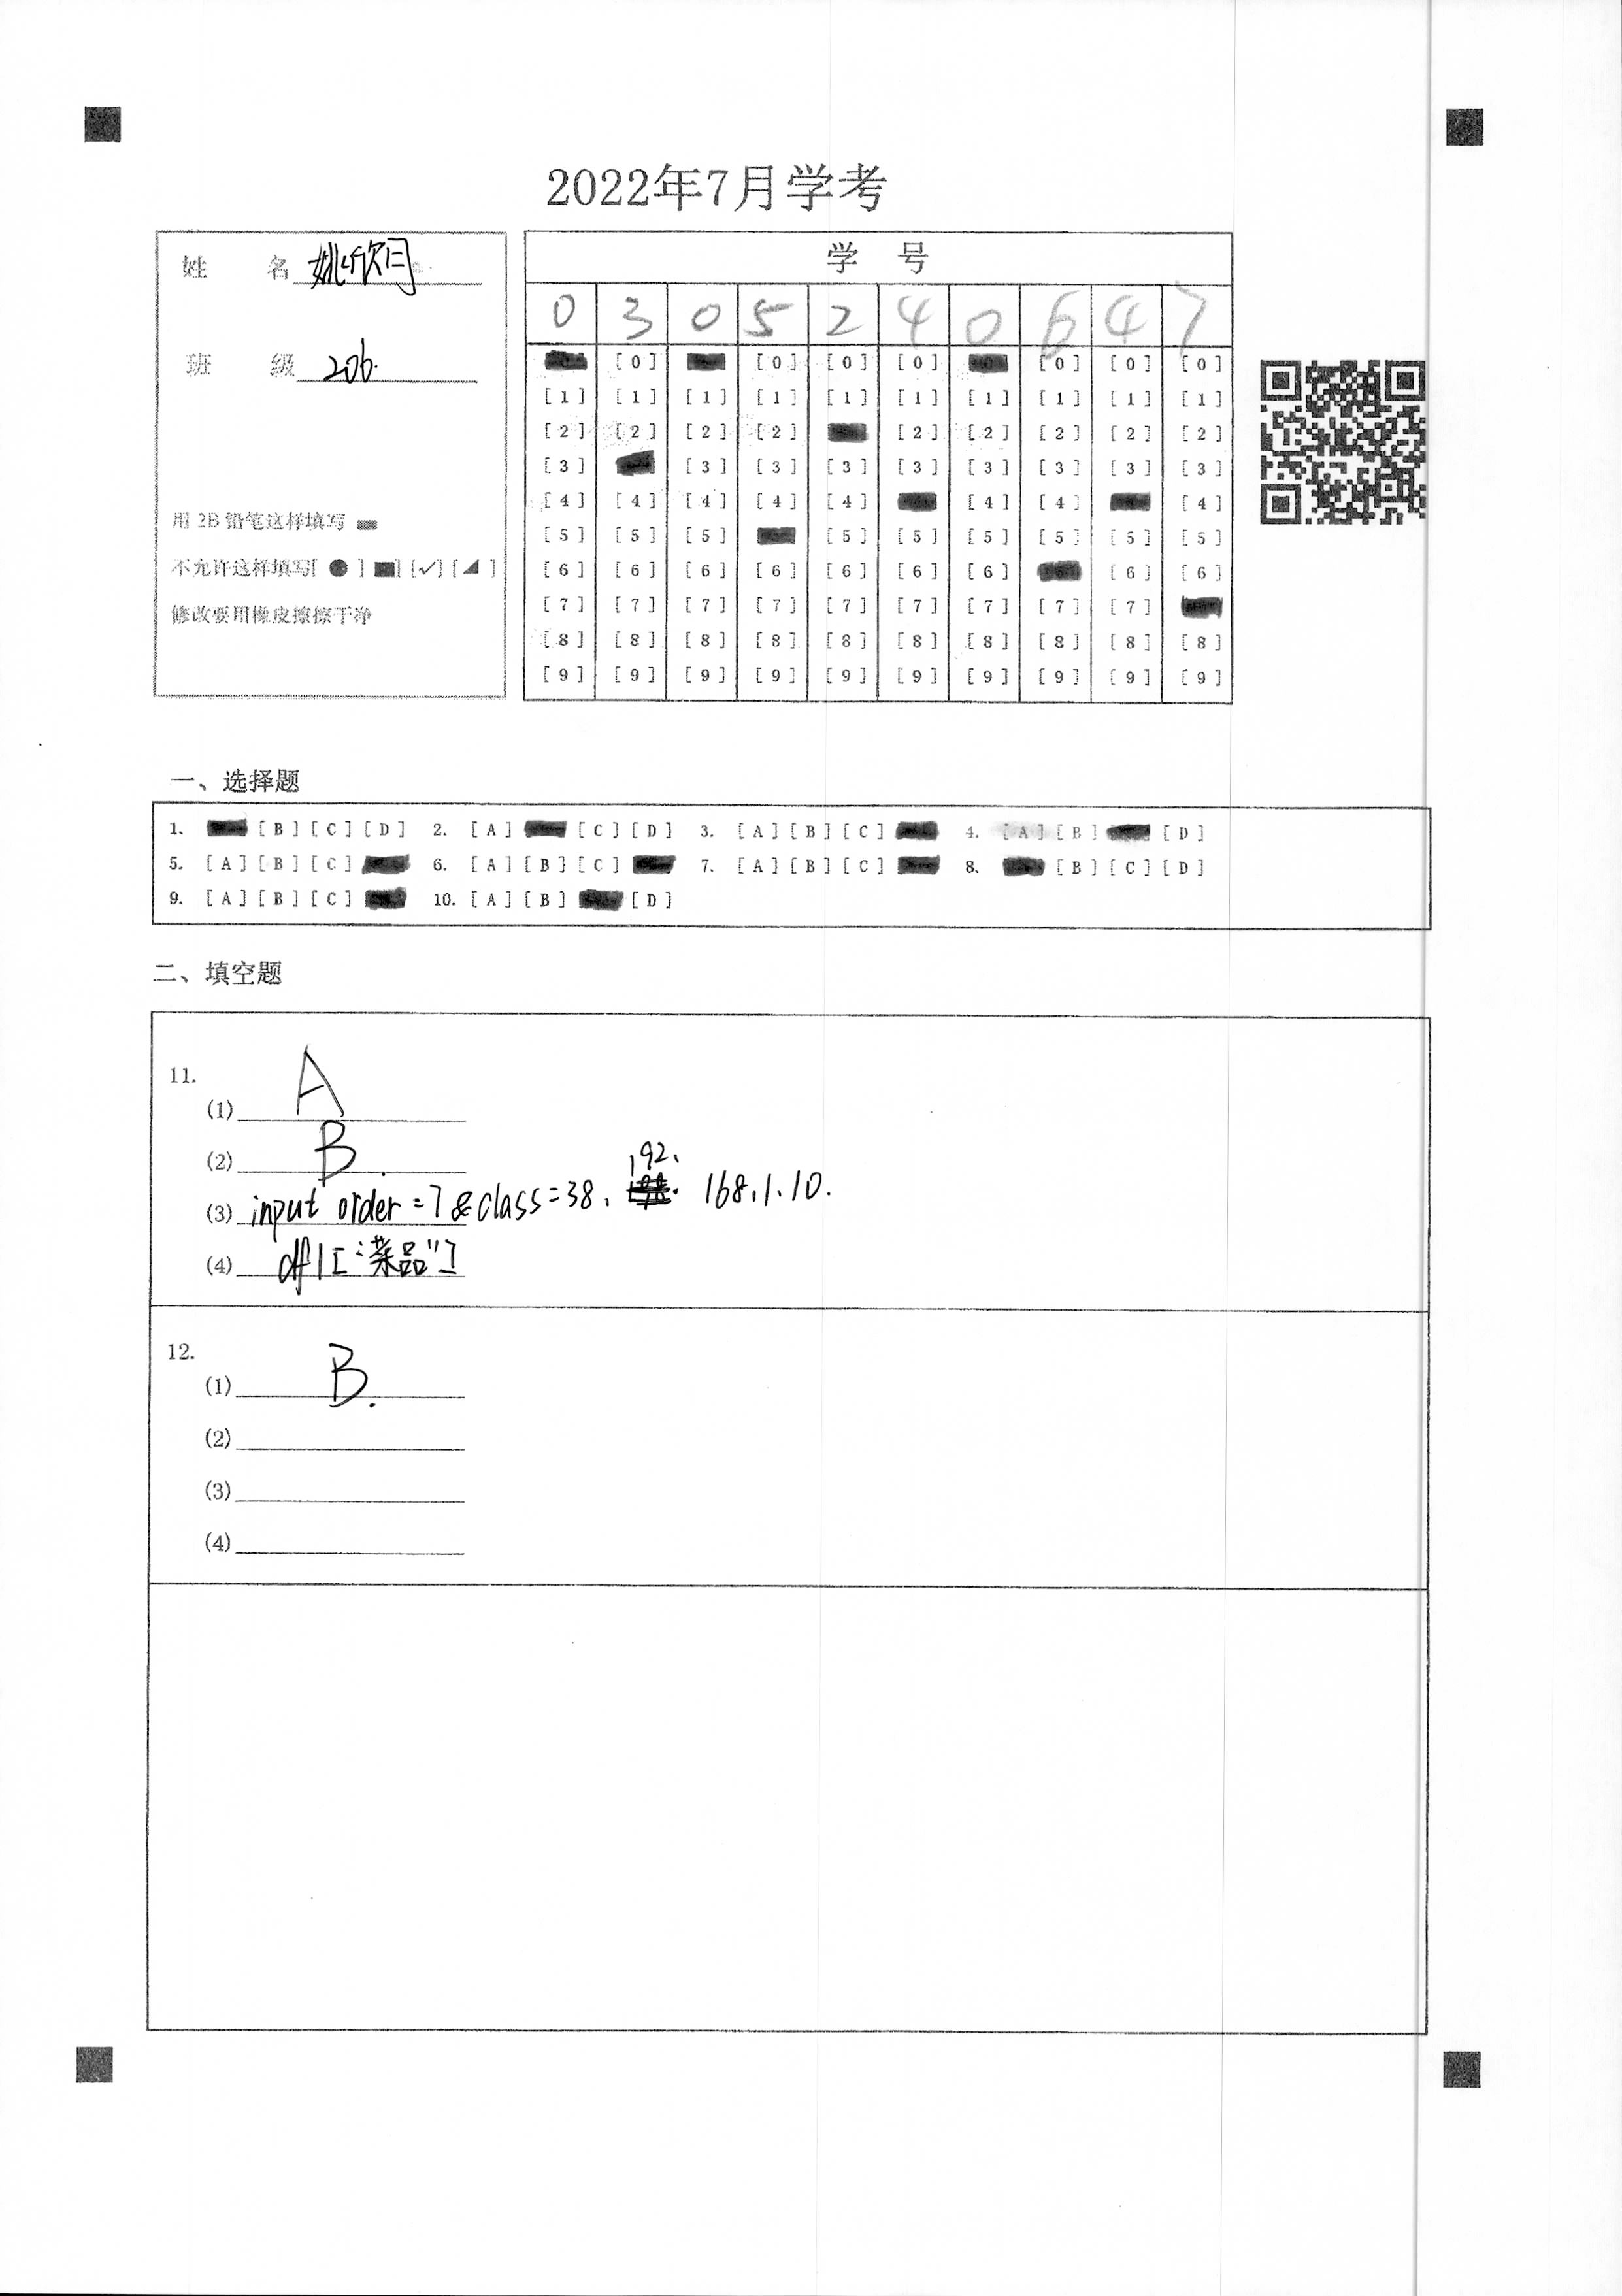 2022年7月学考
姓 名 姚欣闫
班 级 206.
用 2B 铅笔这样填写
不允许这样填写[ ● ] [■] [✓] [◢ ]
修改要用橡皮擦擦干净
学 号
0 3 0 5 2 4 0 6 4 7
[0] [0] [0] [0] [0] [0]
[1] [1] [1] [1] [1] [1] [1] [1] [1] [1]
[2] [2] [2] [2] [2] [2] [2] [2] [2]
[3] [3] [3] [3] [3] [3] [3] [3] [3]
[4] [4] [4] [4] [4] [4] [4] [4]
[5] [5] [5] [5] [5] [5] [5] [5] [5]
[6] [6] [6] [6] [6] [6] [6] [6] [6]
[7] [7] [7] [7] [7] [7] [7] [7] [7]
[8] [8] [8] [8] [8] [8] [8] [8] [8] [8]
[9] [9] [9] [9] [9] [9] [9] [9] [9] [9]
一、选择题
1. [B] [C] [D] 2. [A] [C] [D] 3. [A] [B] [C] 4. [A] [B] [D]
5. [A] [B] [C] 6. [A] [B] [C] 7. [A] [B] [C] 8. [B] [C] [D]
9. [A] [B] [C] 10. [A] [B] [D]
二、填空题
11.
(1) A
(2) B.
(3) input order=7&class=38、192. 168.1.10.
(4) df1["菜品"]
12.
(1) B.
(2)
(3)
(4)